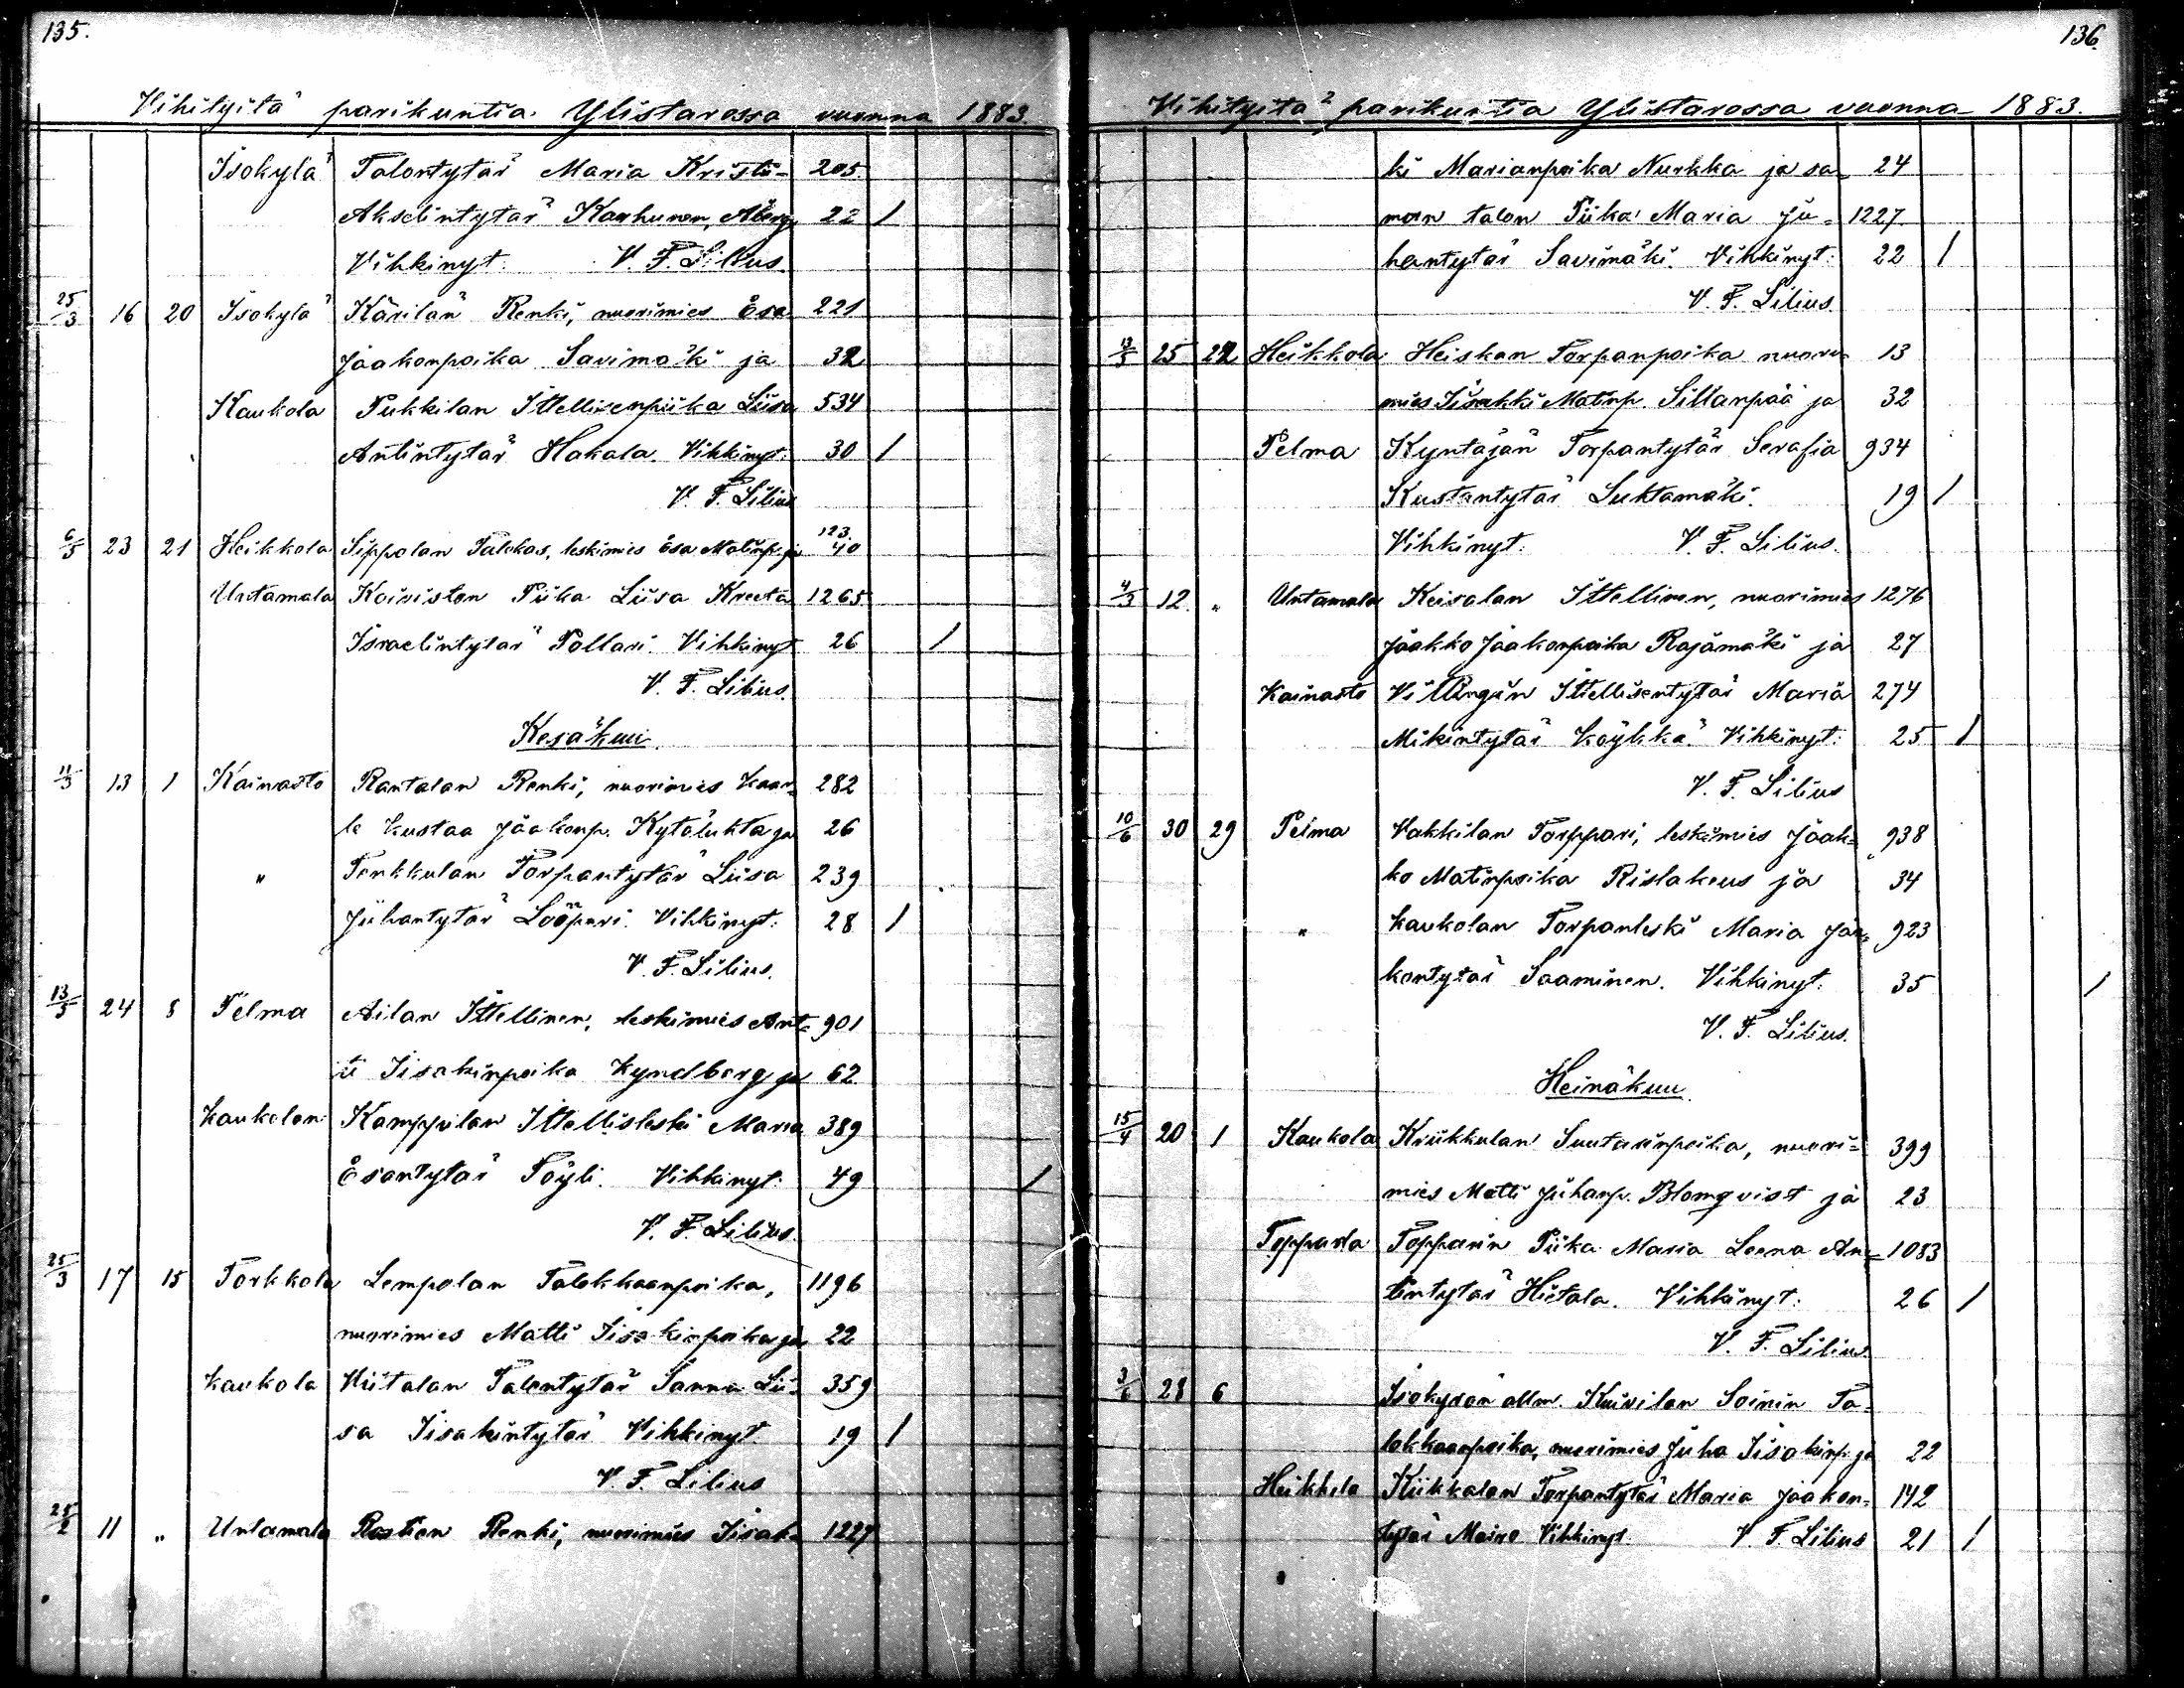 135.
Vihityitä parikuntia Ylistarossa vuonna 1883.
Isokylä Talontytär Maria Kristii- 205.
Akselintytär Karhunen, Åberg, 22 1
Vihkinyt: V. F. Lilius.
25/3 16 20 Isokylä Kärilän Renki, nuorimies Esa 221
Jaakonpoika Savimäki ja 32
Kaukola Pukkilan Ittellisenpiika Liisa 534
Antintytär Hakala. Vihkinyt: 30 1
V. F. Lilius
6/5 23 21 Heikkola Sippolan Talokas, leskimies Esa Matinp. ja 123. 40
Untamala Koiviston Piika Liisa Kreeta 1265
Israelintytär Pollari. Vihkinyt 26 1
V. F. Lilius.
Kesäkuu.
11/3 13 1 Kainasto Rantalan Renki, nuorimies Kaar- 282
le Kustaa Jaakonp. Kytöluhta ja 26
" Penkkulan Torpantytär Liisa 239
Juhantytär Lööperi. Vihkinyt: 28 1
V. F. Lilius.
13/5 24 8 Pelma Ailan Ittellinen, leskimies Ant- 901
ti Iisakinpoika Kyndberg ja 62
Kaukolan Kamppilan Ittellisleski Maria 389
Esantytär Töyli. Vihkinyt: 49 1
V. F. Lilius.
25/3 17 15 Torkkola Lempolan Talokkaanpoika, 1196
nuorimies Matti Iisakinpoika ja 22
Kaukola Hiitalan Talontytär Sanna Lii- 359
sa Iisakintytär Vihkinyt. 19 1
V. F. Lilius
25/2 11 " Untamala Rostien Renki, nuorimies Iisak- 1227
136.
Vihityitä parikuntia Ylistarossa vuonna 1883.
ki Marianpoika Nurkka ja sa- 24
man talon Piika Maria Ju- 1227.
hantytär Savimäki. Vihkinyt: 22 1
V. F. Lilius.
13/5 25 22 Heikkola Heiskan Torpanpoika nuori- 13
mies Iisakki Matinp. Sillanpää ja 32
Pelma Kyntäjän Torpantytär Serafia 934
Kustantytär Luhtamäki. 19 1
Vihkinyt: V. F. Lilius.
4/3 12. " Untamala Keisalan Ittellinen, nuorimies 1276
Jaakko Jaakonpoika Rajamäki ja 27
Kainasto Villingin Ittellisentytär Maria 274
Mikintytär Köykkä. Vihkinyt: 25 1
V. F. Lilius
10/6 30 29 Pelma Vakkilan Torppari, leskimies Jaak- 938
ko Matinpoika Rislakeus ja 34
" Kaukolan Torpanleski Maria Jaa- 923
kontytär Saaminen. Vihkinyt: 35 1
V. F. Lilius.
Heinäkuu.
15/4 20 1 Kaukola Kriikkulan Suutarinpoika, nuori- 399
mies Matti Juhanp. Blomqvist ja 23
Topparla Topparin Piika Maria Leena An- 1083
tintytär Hietala. Vihkinyt: 26 1
V. F. Lilius.
3/6 28 6 Isokyrön allm. Kuivilan Soinin Ta-
lokkaanpoika, nuorimies Juha Iisakinp. ja 22
Heikkola Kiikkalan Torpantytär Maria Jaakon- 142
tytär Maire Vihkinyt. V. F. Lilius 21 1